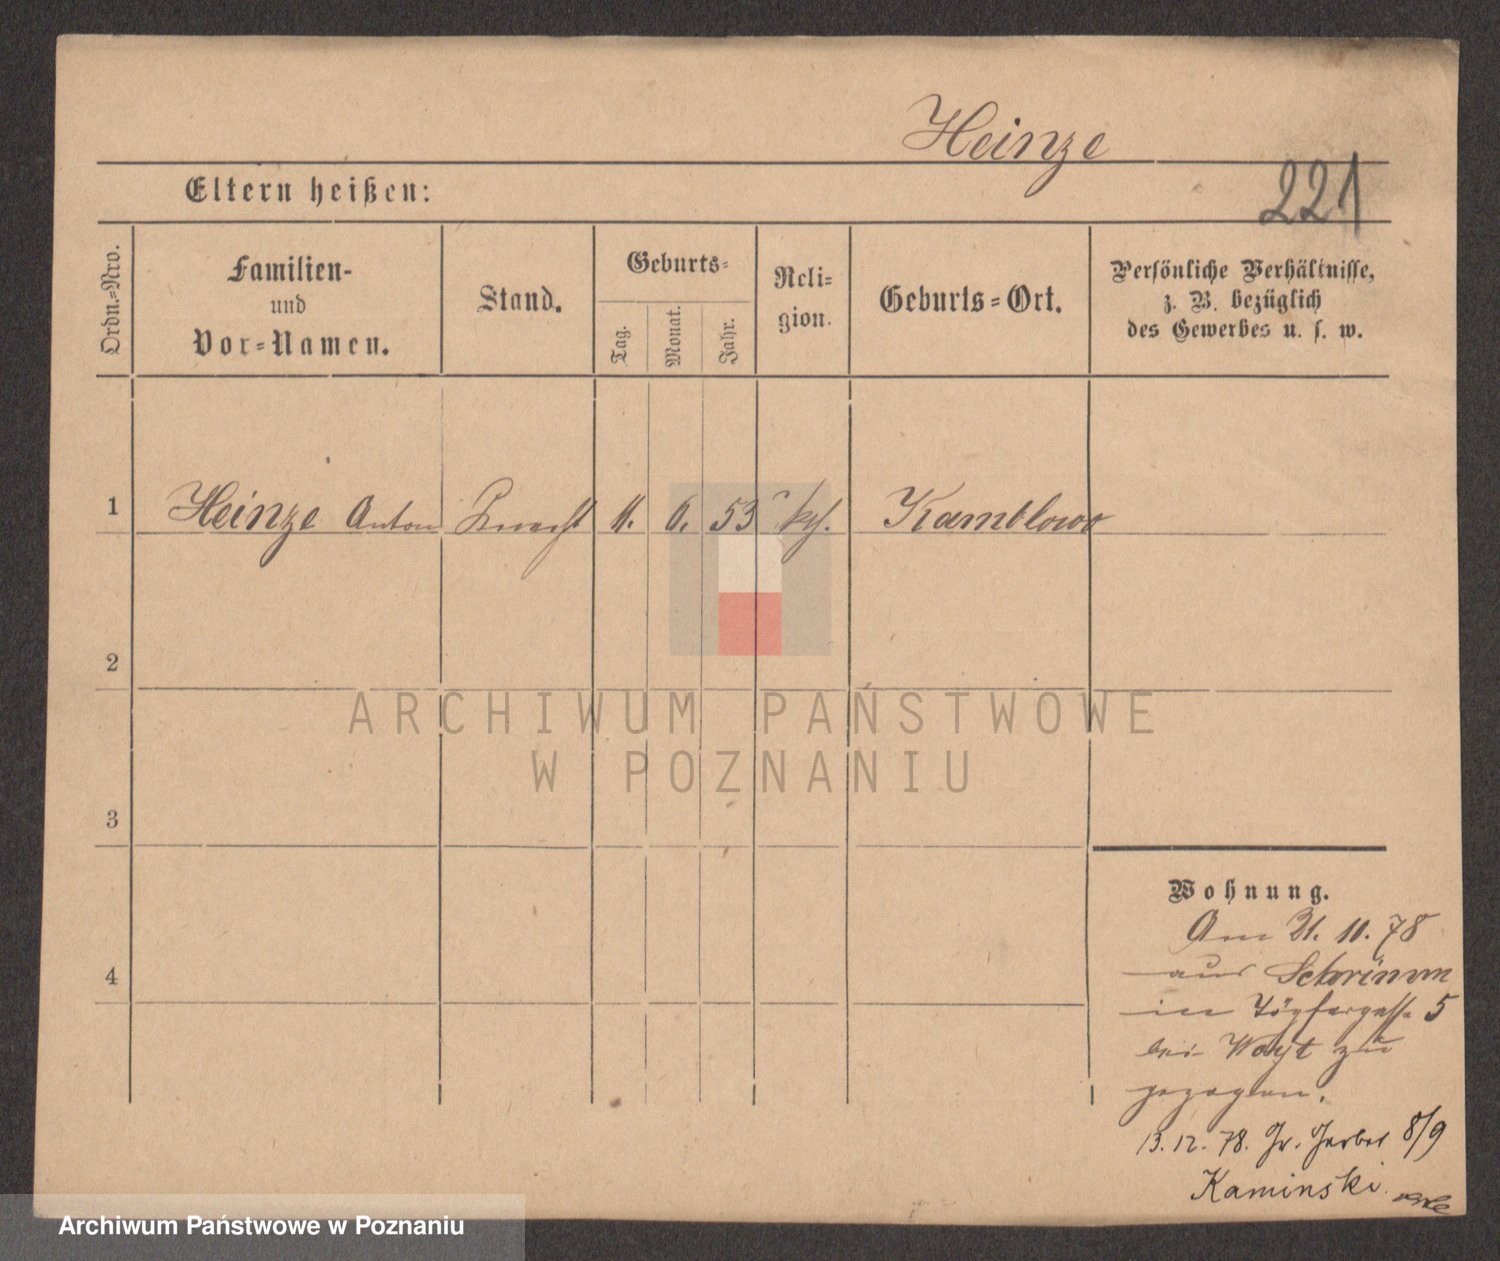 Heinze
221
Eltern heißen:
Ordn.=Nro.
Familien-
und
Vor=Namen.
Stand.
Geburts=
Tag.
Monat.
Jahr.
Reli=
gion.
Geburts=Ort.
Persönliche Verhältnisse,
z. B. bezüglich
des Gewerbes u. s. w.
1 Heinze Anton Knecht 11. 6. 53 kth. Kamblowo
2
3
4
ARCHIWUM PAŃSTWOWE
W POZNANIU
Wohnung.
Am 21. 10. 78
aus Schrimm
in Töpfergasse 5
bei Woyt zu
gezogen.
13. 12. 78. Gr. Gerber 8/9
Kaminski.
Archiwum Państwowe w Poznaniu